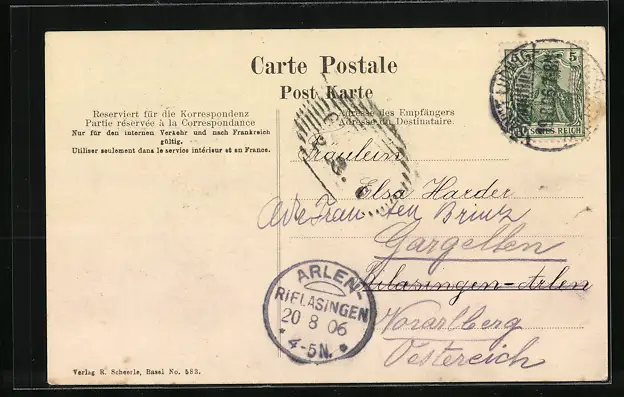 Carte Postale
Post Karte
Reserviert für die Korrespondenz
Partie réservée à la Correspondance
Nur für den internen Verkehr und nach Frankreich
gültig.
Utiliser seulement dans le service intérieur et en France.
Adresse des Empfängers
Adresse du Destinataire.
5
REICH
Fräulein
Elsa Harder
Gargellen
Rilasingen-Arlen
Vorarlberg
Oestereich
ARLEN-
RIELASINGEN
20 8 06
* 4-5N. *
Verlag R. Scheerle, Basel No. 583.